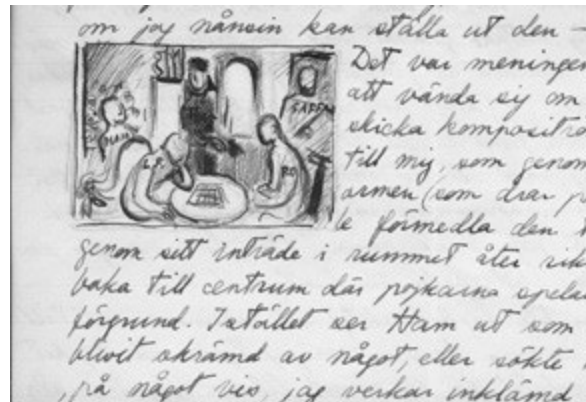 om jag nånsin kan ställa ut den –
Det var meningen
att vända sig om
skicka kompositio
till mig, som genom
armen (som drar p
le förmedla den t
genom sitt inträde i rummet åter rik
baka till centrum där pojkarna spela
förgrund. Istället ser Ham ut som
blivit skrämd av något, eller sökte
på något vis, jag verkar inklämd
HAM
L.P.
RO